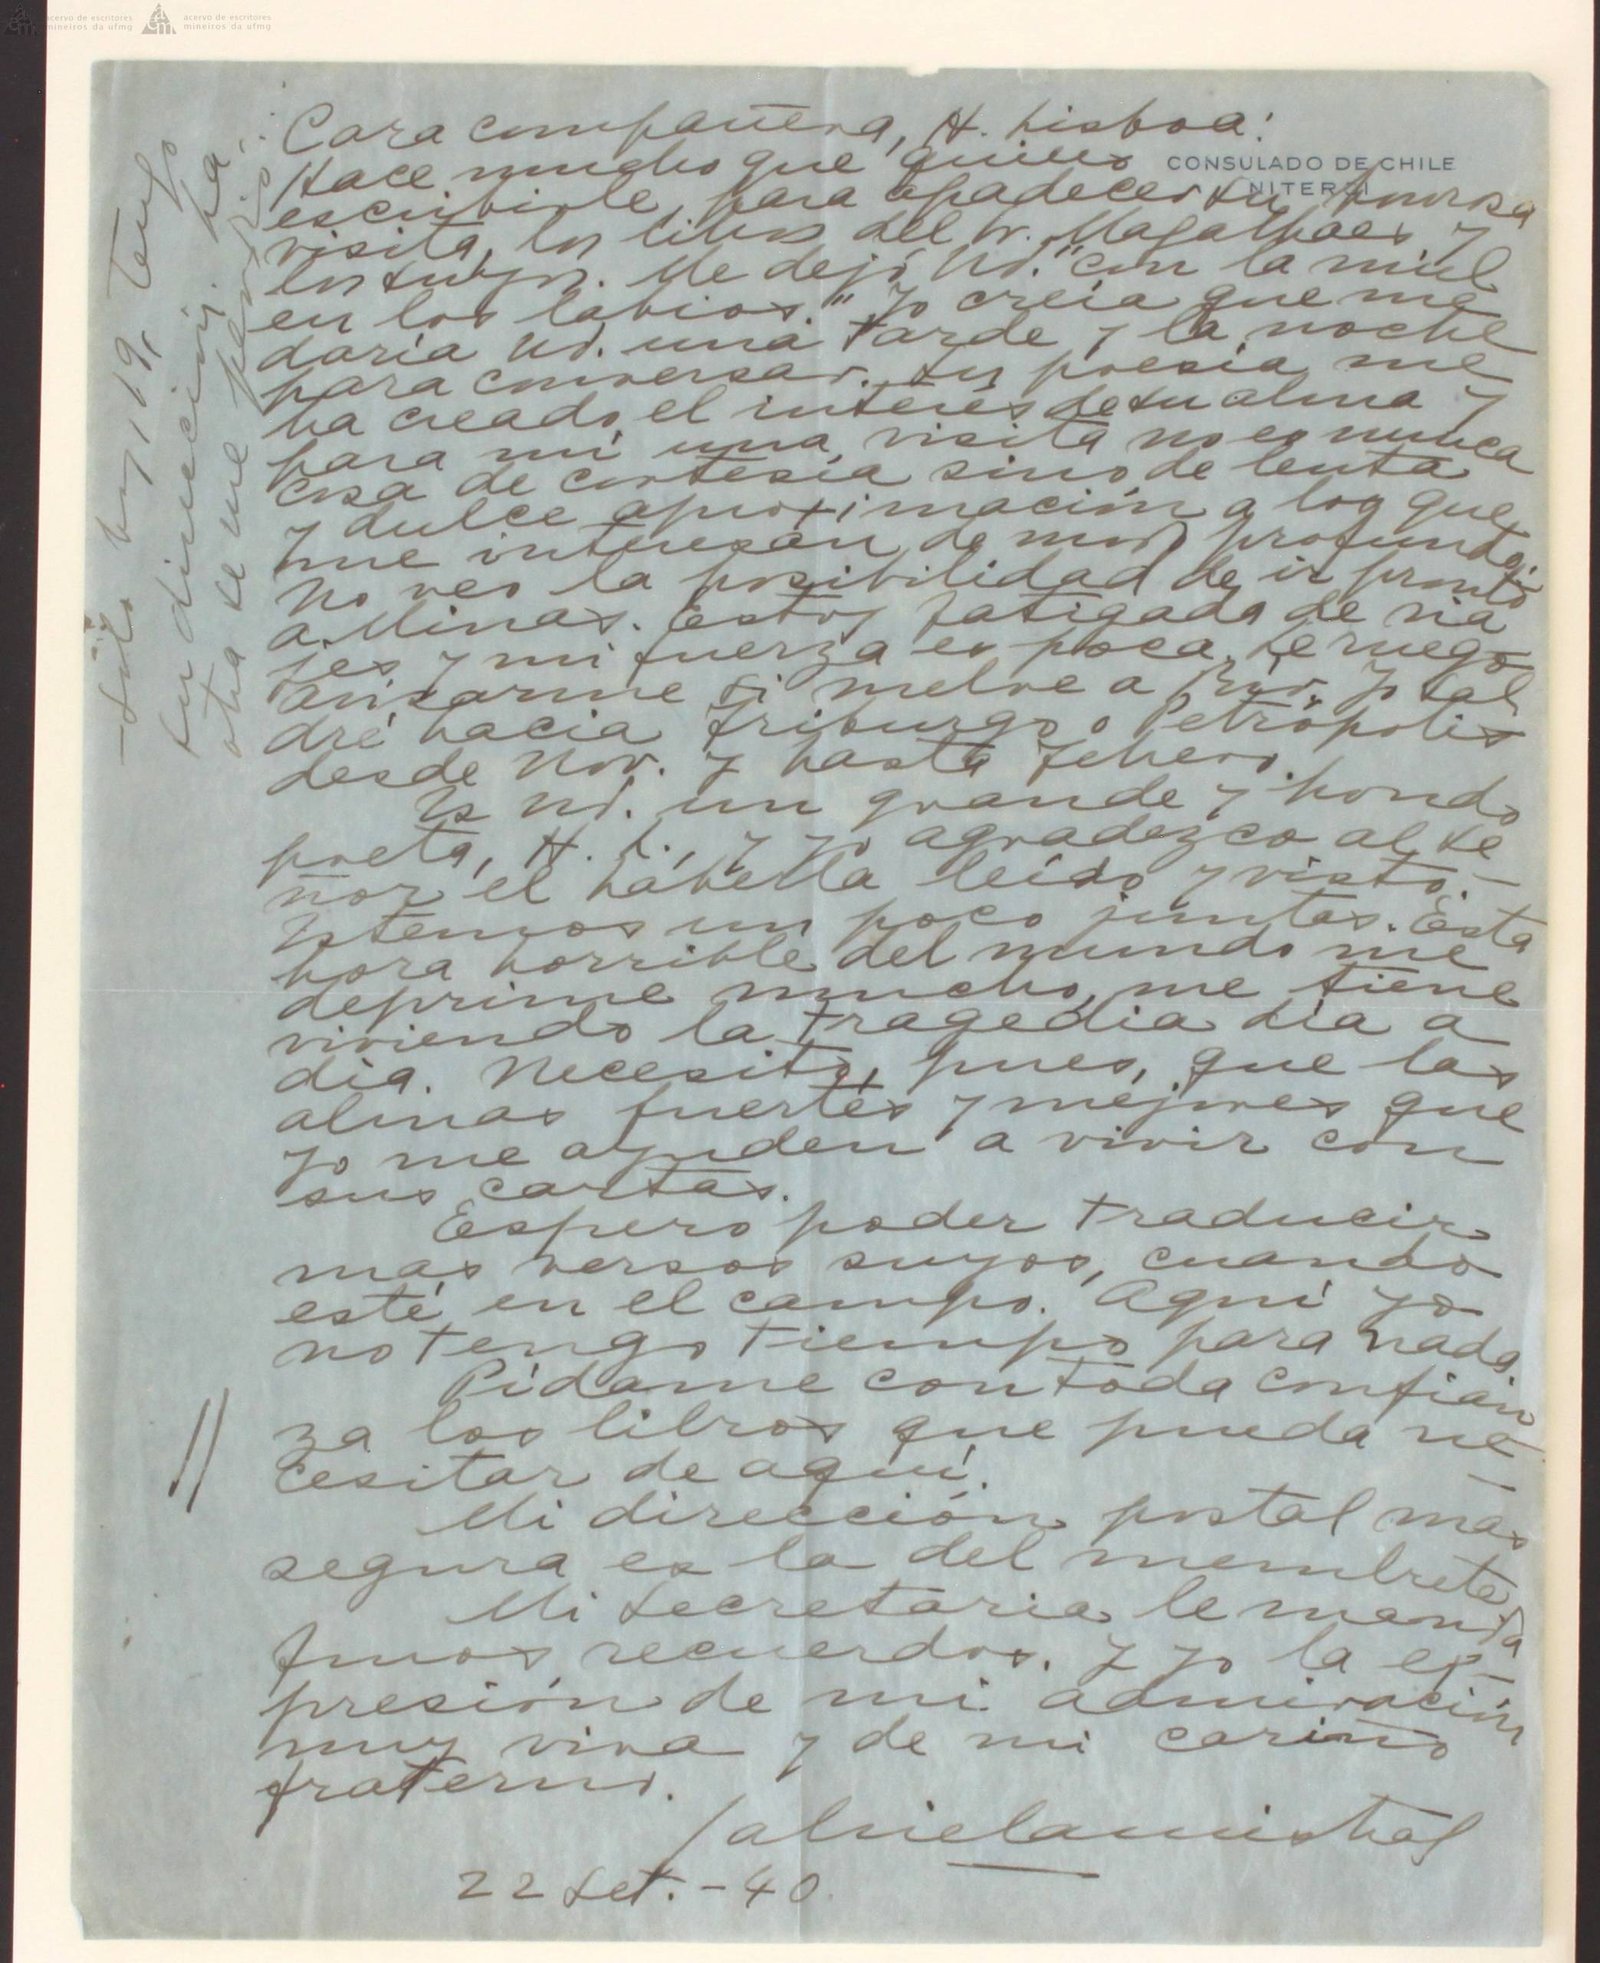 acervo de escritores
mineiros da ufmg
acervo de escritores
mineiros da ufmg
CONSULADO DE CHILE
NITEROI
Cara compañera, H. Lisboa:
Hace mucho que quiero
escribirle, para agradecer su
visita, los libros del Sr. Magalhaes y
los suyos. Me dejó Ud. "con la miel
en los labios." Yo creía que me
daría Ud. una tarde y la noche
para conversar. Su poesía me
ha creado el interés de su alma y
para mí una visita no es nunca
cosa de cortesía sino de lenta
y dulce aproximación a los que
me interesan de modo profundo.
No veo la posibilidad de ir pronto
a Minas. Estoy fatigada de via
jes y mi fuerza es poca. Le ruego
avisarme si vuelve a Río. Yo sal
dré hacia Friburgo o Petrópolis
desde Nov. y hasta febrero.
Es Ud. un grande y hondo
poeta, H. L., y yo agradezco al Se
ñor el haberla leído y visto.-
Estemos un poco juntas. Esta
hora horrible del mundo me
deprime mucho, me tiene
viviendo la tragedia día a
día. Necesito, pues, que las
almas fuertes y mejores que
yo me ayuden a vivir con
sus cartas.
Espero poder traducir
mas versos suyos, cuando
esté en el campo. Aquí yo
no tengo tiempo para nada
Pídame con toda confian
za los libros que pueda ne-
cesitar de aquí.
Mi dirección postal mas
segura es la del membrete
Mi secretaria le manda
finos recuerdos. Y yo la ex-
presión de mi admiración
muy viva y de mi cariño
fraterno.
Gabriela Mistral
22 Set. - 40
- Solo hoy, 19, tengo
su dirección. La
otra se me perdió